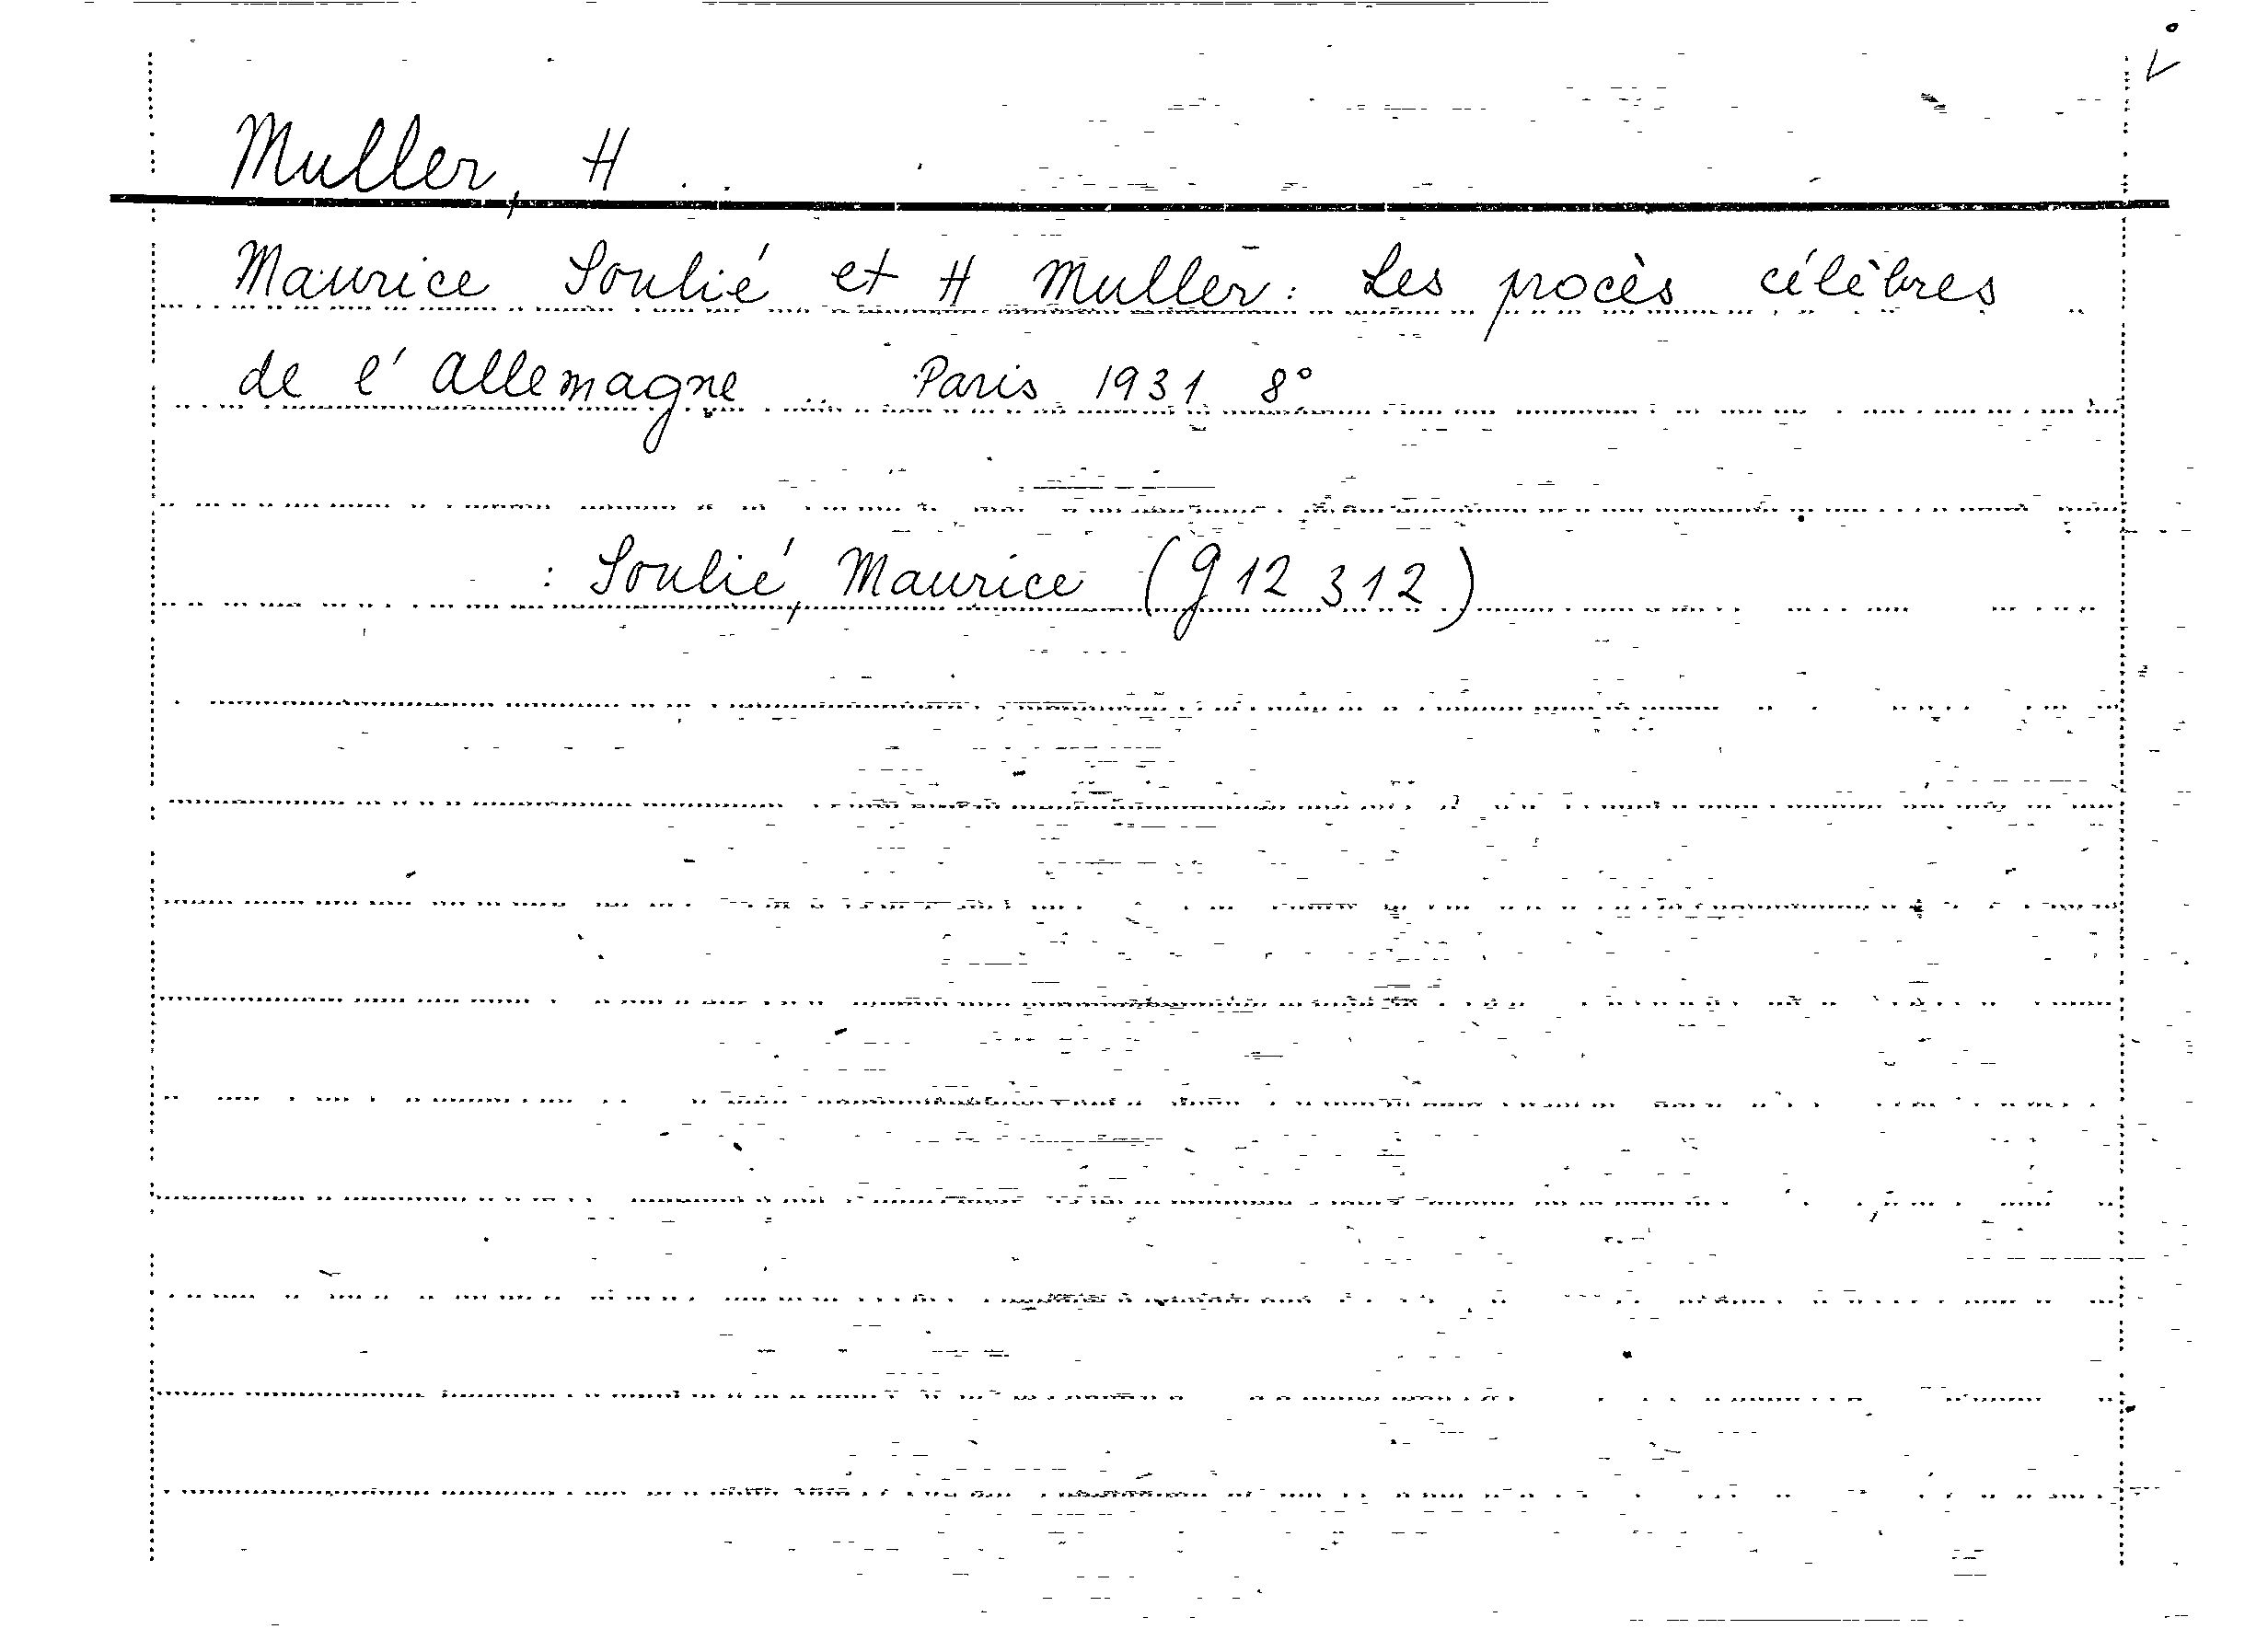 Muller, H
Maurice Soulié et H Muller: Les procès célèbres
de l'Allemagne Paris 1931 8°
: Soulié, Maurice (g 12 312)